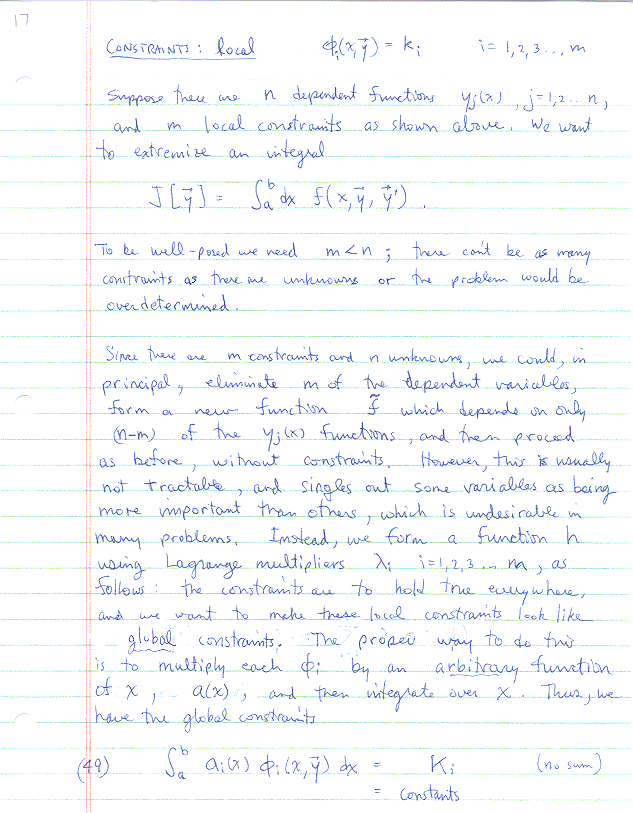 17
CONSTRAINTS: local ϕᵢ(x, y⃗) = kᵢ i = 1, 2, 3 ..., m
Suppose there are n dependent functions yⱼ(x), j = 1, 2... n,
and m local constraints as shown above. We want
to extremize an integral
J[y⃗] = ∫ₐᵇ dx f(x, y⃗, y⃗').
To be well-posed we need m < n; there can't be as many
constraints as there are unknowns or the problem would be
overdetermined.
Since there are m constraints and n unknowns, we could, in
principal, eliminate m of the dependent variables,
form a new function f̃ which depends on only
(n-m) of the yⱼ(x) functions, and then proceed
as before, without constraints. However, this is usually
not tractable, and singles out some variables as being
more important than others, which is undesirable in
many problems. Instead, we form a function h
using Lagrange multipliers λᵢ i = 1, 2, 3 ... m, as
follows: the constraints are to hold true everywhere,
and we want to make these local constraints look like
global constraints. The proper way to do this
is to multiply each ϕᵢ by an arbitrary function
of x, a(x), and then integrate over x. Thus, we
have the global constraints
(49) ∫ₐᵇ aᵢ(x) ϕᵢ(x, y⃗) dx = Kᵢ (no sum)
= constants